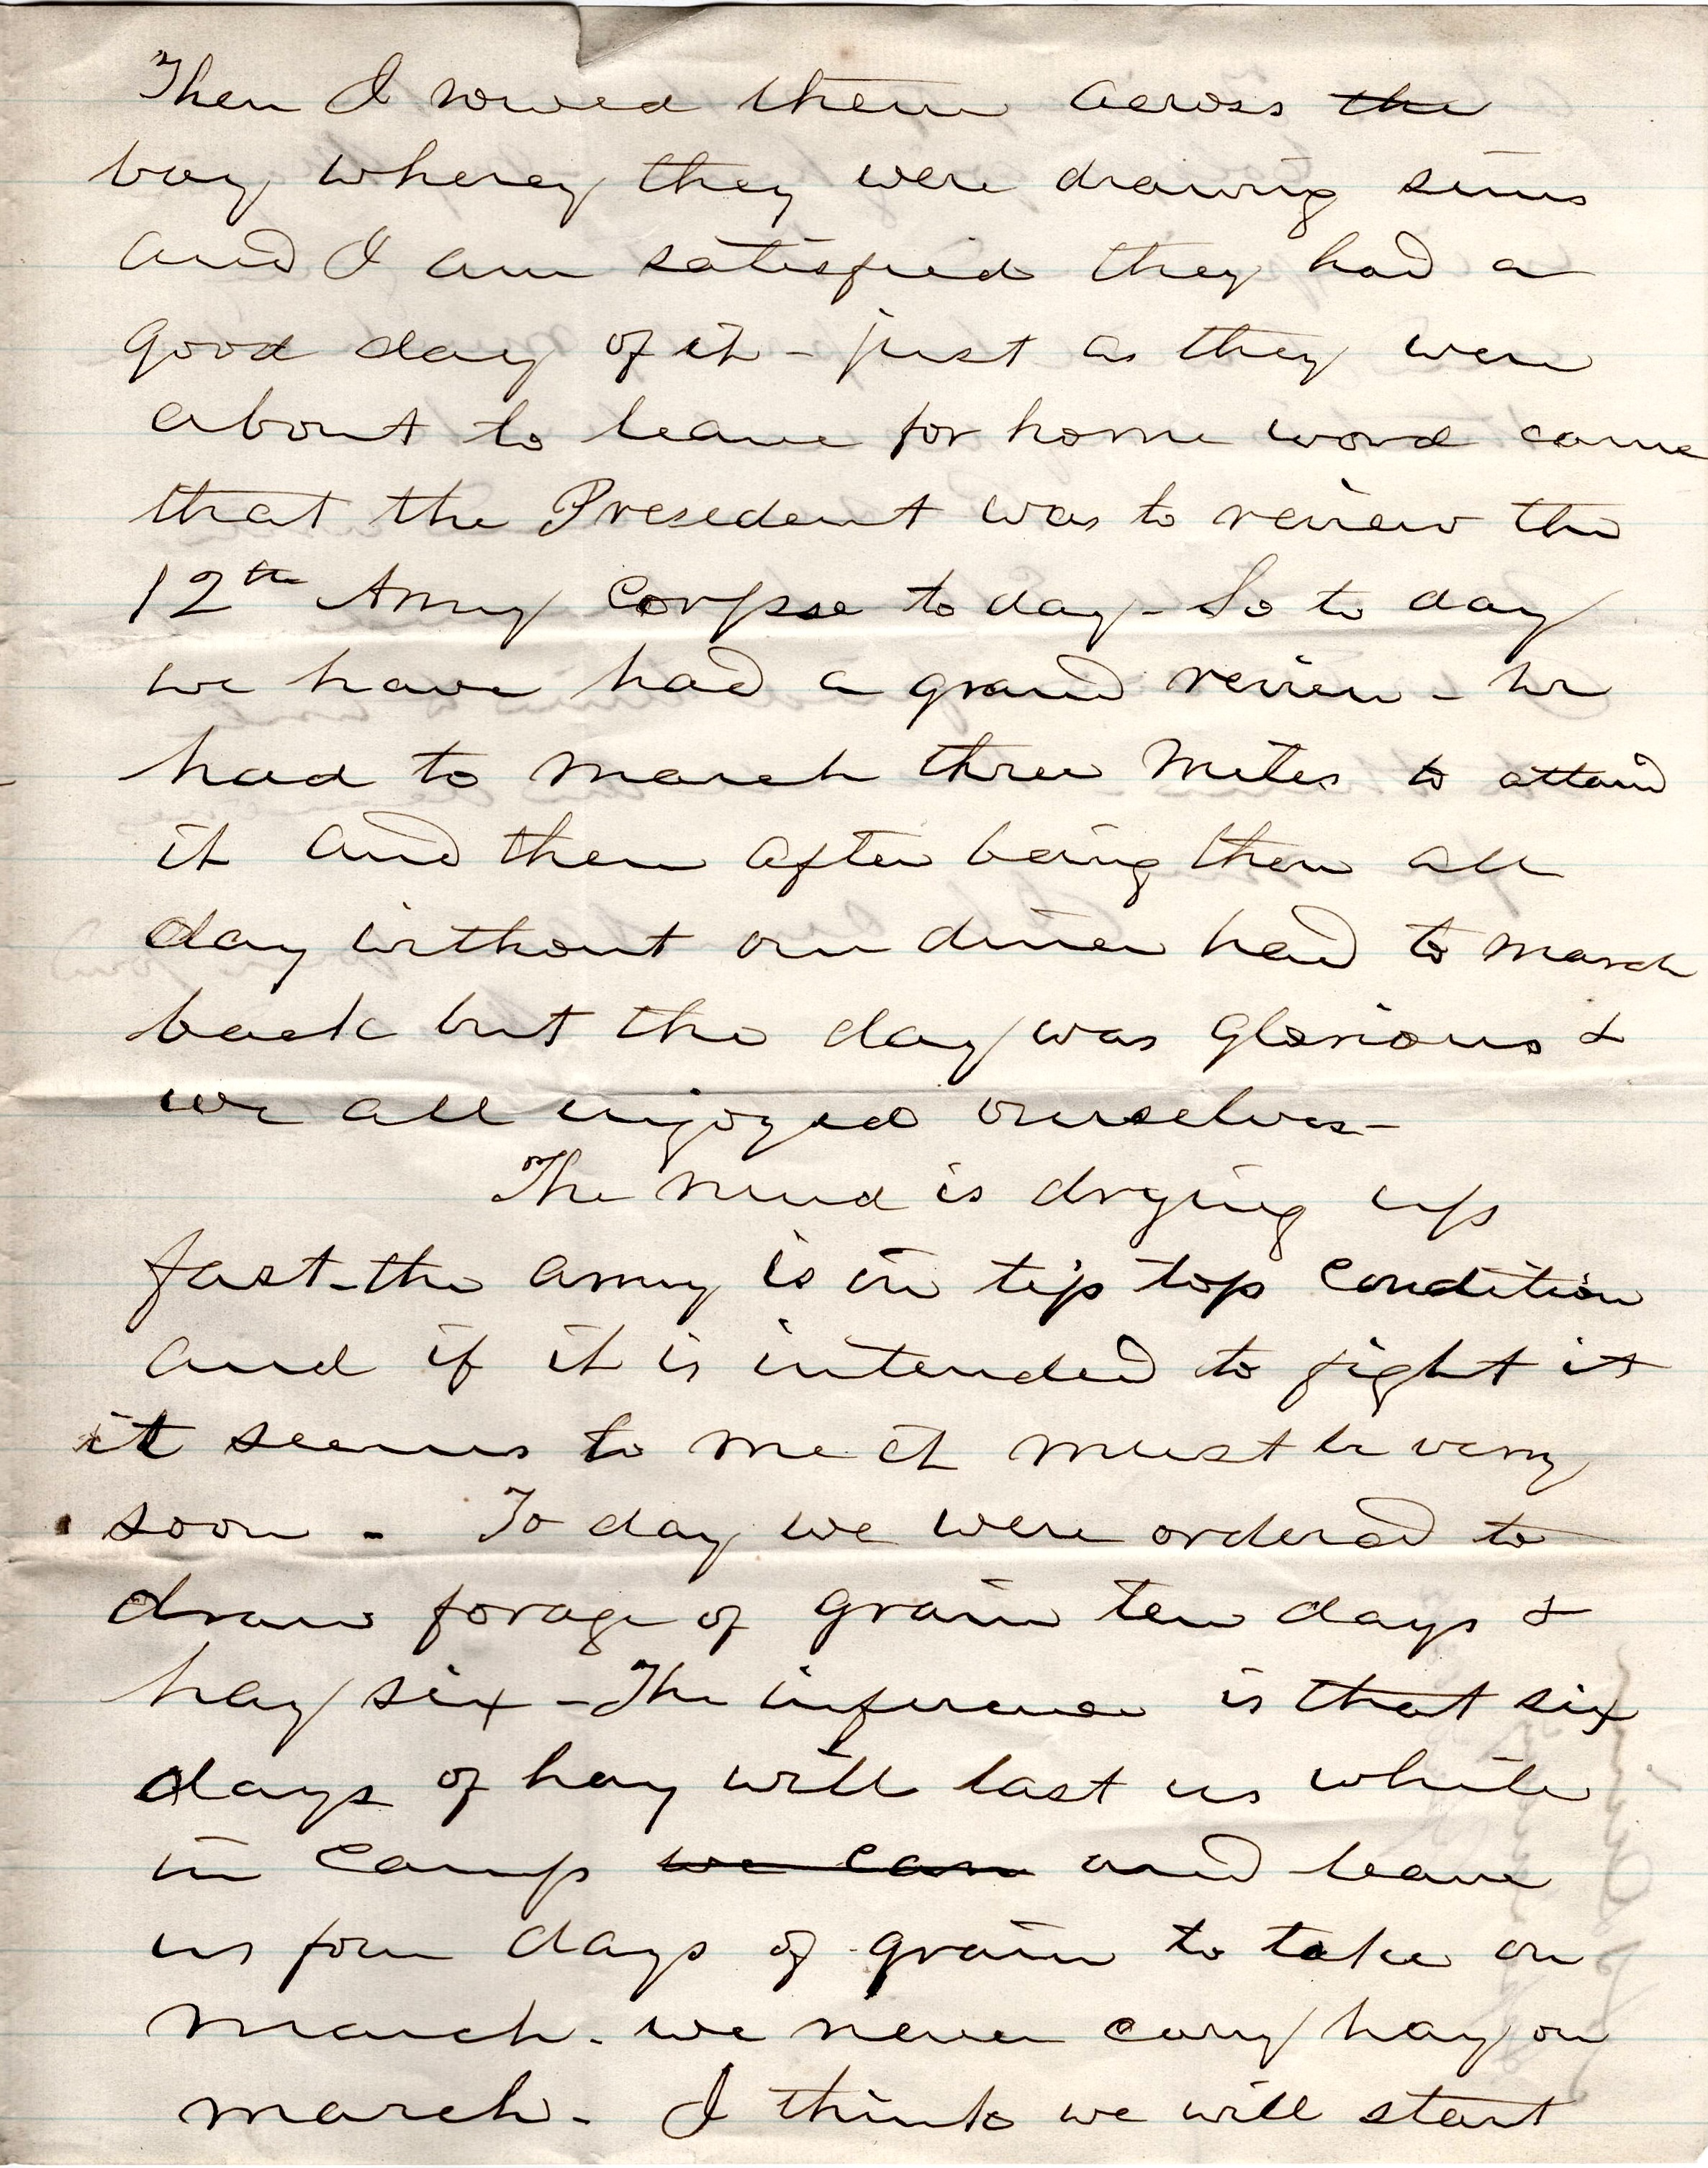 Then I rowed them across ~~the~~
bay wherey they were drawing seins
and I am satisfied they had a
good day of it - just as they were
about to leave for home word came
that the Presedent was to review the
12th Army Corpse to day - So to day
we have had a grand review - we
had to march three miles to attend
it and then after being there all
day without our diner had to march
back but the day was glorious &
we all injoyed ourselves -
The mud is drying up
fast - the army is in tip top condition
and if it is intended to fight it
it seems to me it must be very
soon - To day we were ordered to
draw forage of grain ten days &
hay six - The inference is that six
days of hay will last us while
in camp ~~we can~~ and leave
us four days of grain to take on
march - we never carry hay on
march - I think we will start